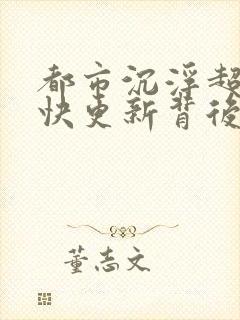 都市沉浮超
快更新背後
董志文